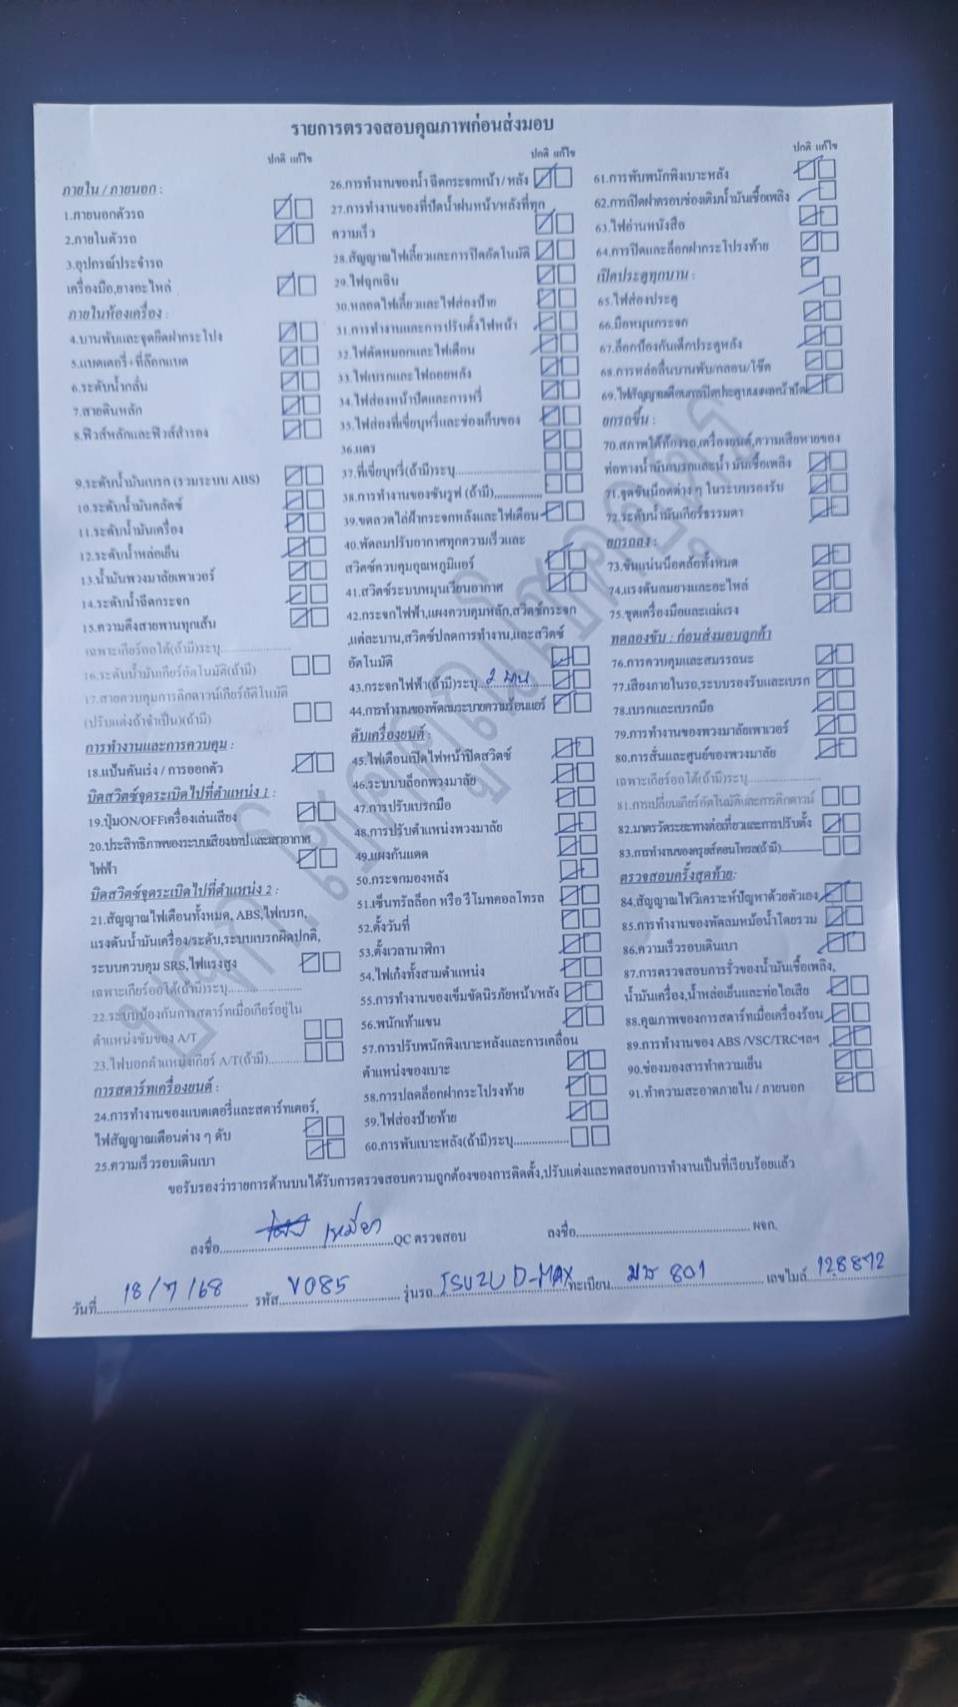 รายการตรวจสอบคุณภาพก่อนส่งมอบ
ปกติ แก้ไข
ภายใน / ภายนอก :
1.ภายนอกตัวรถ
2.ภายในตัวรถ
3.อุปกรณ์ประจำรถ
เครื่องมือ,ยางอะไหล่
ภายในห้องเครื่อง :
4.บานพับและจุดยึดฝากระโปรง
5.แบตเตอรี่+ที่ล๊อกแบต
6.ระดับน้ำกลั่น
7.สายดินหลัก
8.ฟิวส์หลักและฟิวส์สำรอง
9.ระดับน้ำมันเบรค (รวมระบบ ABS)
10.ระดับน้ำมันคลัตช์
11.ระดับน้ำมันเครื่อง
12.ระดับน้ำหล่อเย็น
13.น้ำมันพวงมาลัยเพาเวอร์
14.ระดับน้ำฉีดกระจก
15.ความตึงสายพานทุกเส้น
เฉพาะเกียร์ออโต้(ถ้ามี)ระบุ
16.ระดับน้ำมันเกียร์อัตโนมัติ(ถ้ามี)
17.สายควบคุมการคิกดาวน์เกียร์อัตโนมัติ
(ปรับแต่งถ้าจำเป็น)(ถ้ามี)
การทำงานและการควบคุม :
18.แป้นคันเร่ง / การออกตัว
บิดสวิตซ์จุดระเบิดไปที่ตำแหน่ง 1 :
19.ปุ่มON/OFFเครื่องเล่นเสียง
20.ประสิทธิภาพของระบบเสียงเทปและเสาอากาศ
ไฟฟ้า
บิดสวิตซ์จุดระเบิดไปที่ตำแหน่ง 2 :
21.สัญญาณไฟเตือนทั้งหมด, ABS,ไฟเบรก,
แรงดันน้ำมันเครื่อง/ระดับ,ระบบเบรกผิดปกติ,
ระบบควบคุม SRS,ไฟแรงสูง
เฉพาะเกียร์ออโต้(ถ้ามี)ระบุ
22.ระบบป้องกันการสตาร์ทเมื่อเกียร์อยู่ใน
ตำแหน่งขับของ A/T
23.ไฟบอกตำแหน่งเกียร์ A/T(ถ้ามี)
การสตาร์ทเครื่องยนต์ :
24.การทำงานของแบตเตอรี่และสตาร์ทเตอร์,
ไฟสัญญาณเตือนต่าง ๆ ดับ
25.ความเร็วรอบเดินเบา
ปกติ แก้ไข
26.การทำงานของน้ำฉีดกระจกหน้า / หลัง
27.การทำงานของที่ปัดน้ำฝนหน้า/หลังที่ทุก
ความเร็ว
28.สัญญาณไฟเลี้ยวและการปิดอัตโนมัติ
29.ไฟฉุกเฉิน
30.หลอดไฟเลี้ยวและไฟส่องป้าย
31.การทำงานและการปรับตั้งไฟหน้า
32.ไฟตัดหมอกและไฟเตือน
33.ไฟเบรกและไฟถอยหลัง
34.ไฟส่องหน้าปัดและการหรี่
35.ไฟส่องที่เขี่ยบุหรี่และช่องเก็บของ
36.แตร
37.ที่เขี่ยบุหรี่(ถ้ามี)ระบุ
38.การทำงานของซันรูฟ (ถ้ามี)
39.ขดลวดไล่ฝ้ากระจกหลังและไฟเตือน
40.พัดลมปรับอากาศทุกความเร็วและ
สวิตช์ควบคุมอุณหภูมิแอร์
41.สวิตช์ระบบหมุนเวียนอากาศ
42.กระจกไฟฟ้า,แผงควบคุมหลัก,สวิตช์กระจก
,แต่ละบาน,สวิตช์ปลดการทำงาน,และสวิตช์
อัตโนมัติ
43.กระจกไฟฟ้า(ถ้ามี)ระบุ 2 บาน
44.การทำงานของพัดลมระบายความร้อนแอร์
ดับเครื่องยนต์ :
45.ไฟเตือนเปิดไฟหน้าปิดสวิตช์
46.ระบบบล็อกพวงมาลัย
47.การปรับเบรกมือ
48.การปรับตำแหน่งพวงมาลัย
49.แผงกันแดด
50.กระจกมองหลัง
51.เซ็นทรัลล็อก หรือ รีโมทคอลโทรล
52.ตั้งวันที่
53.ตั้งเวลานาฬิกา
54.ไฟเก๋งทั้งสามตำแหน่ง
55.การทำงานของเข็มขัดนิรภัยหน้า/หลัง
56.พนักเท้าแขน
57.การปรับพนักพิงเบาะหลังและการเคลื่อน
ตำแหน่งของเบาะ
58.การปลดล็อกฝากระโปรงท้าย
59.ไฟส่องป้ายท้าย
60.การพับเบาะหลัง(ถ้ามี)ระบุ
ปกติ แก้ไข
61.การพับพนักพิงเบาะหลัง
62.การเปิดฝาครอบช่องเติมน้ำมันเชื้อเพลิง
63.ไฟอ่านหนังสือ
64.การปิดและล็อกฝากระโปรงท้าย
เปิดประตูทุกบาน :
65.ไฟส่องประตู
66.มือหมุนกระจก
67.ล็อกป้องกันเด็กประตูหลัง
68.การหล่อลื่นบานพับ/กลอน/โช๊ค
69.ไฟสัญญาณเตือนการเปิดประตู
ยกรถขึ้น :
70.สภาพใต้ท้องรถ,เครื่องยนต์,ความเสียหายของ
ท่อทางน้ำมันเบรกและน้ำมันเชื้อเพลิง
71.จุดขันน็อตต่าง ๆ ในระบบรองรับ
72.ระดับน้ำมันเกียร์ธรรมดา
ยกรถลง :
73.ขันแน่นน็อตล้อทั้งหมด
74.แรงดันลมยางและอะไหล่
75.ชุดเครื่องมือและแม่แรง
ทดลองขับ : ก่อนส่งมอบลูกค้า
76.การควบคุมและสมรรถนะ
77.เสียงภายในรถ,ระบบรองรับและเบรก
78.เบรกและเบรกมือ
79.การทำงานของพวงมาลัยเพาเวอร์
80.การสั่นและศูนย์ของพวงมาลัย
เฉพาะเกียร์ออโต้(ถ้ามี)ระบุ
81.การเปลี่ยนเกียร์อัตโนมัติและการคิกดาวน์
82.มาตรวัดระยะทางต่อเที่ยวและการปรับตั้ง
83.การทำงานของครูสคอนโทรล(ถ้ามี)
ตรวจสอบครั้งสุดท้าย:
84.สัญญาณไฟวิเคราะห์ปัญหาด้วยตัวเอง
85.การทำงานของพัดลมหม้อน้ำโดยรวม
86.ความเร็วรอบเดินเบา
87.การตรวจสอบการรั่วของน้ำมันเชื้อเพลิง,
น้ำมันเครื่อง,น้ำหล่อเย็นและท่อไอเสีย
88.คุณภาพของการสตาร์ทเมื่อเครื่องร้อน
89.การทำงานของ ABS /VSC/TRCฯลฯ
90.ช่องมองสารทำความเย็น
91.ทำความสะอาดภายใน / ภายนอก
ขอรับรองว่ารายการด้านบนได้รับการตรวจสอบความถูกต้องของการติดตั้ง,ปรับแต่งและทดสอบการทำงานเป็นที่เรียบร้อยแล้ว
ลงชื่อ เหมียว QC ตรวจสอบ ลงชื่อ ผจก.
วันที่ 18/7/68 รหัส V085 รุ่นรถ ISUZU D-MAX ทะเบียน 801 เลขไมล์ 128872